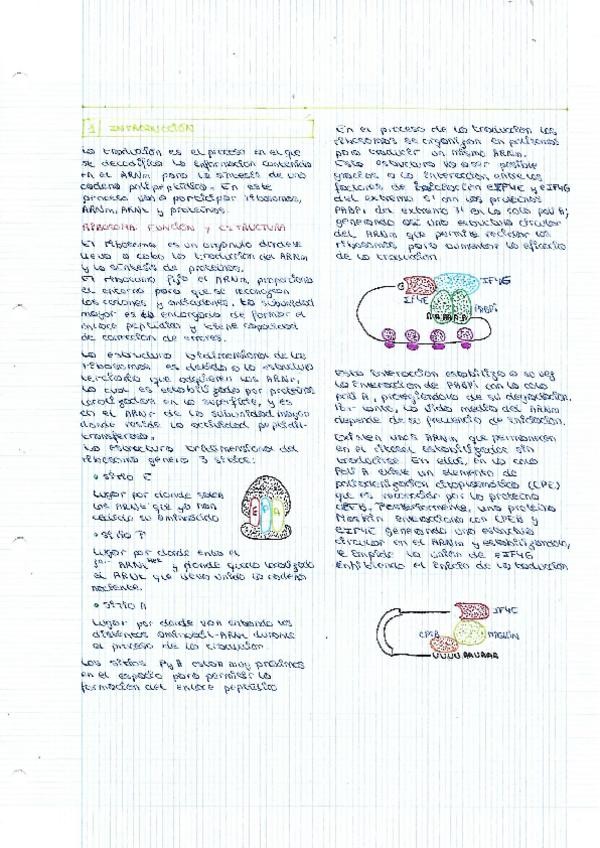 1 INTRODUCCIÓN
La traducción es el proceso en el que
se decodifica la información contenida
en el ARNm para la síntesis de una
cadena polipeptídica. En este
proceso van a participar ribosomas,
ARNm, ARNt y proteínas.
RIBOSOMA: FUNCIÓN Y ESTRUCTURA
El ribosoma es un orgánulo donde se
lleva a cabo la traducción del ARNm
y la síntesis de proteínas.
El ribosoma fija el ARNm, proporciona
el entorno para que se reconozcan
los codones y anticodones. La subunidad
mayor es la encargada de formar el
enlace peptídico y tiene capacidad
de corrección de errores.
La estructura tridimensional de los
ribosomas es debida a la estructura
terciaria que adquieren los ARNr,
la cual es estabilizada por proteínas
localizadas en la superficie, y es
en el ARNr de la subunidad mayor
donde reside la actividad peptidil-
transferasa.
La estructura tridimensional del
ribosoma genera 3 sitios:
• Sitio E
Lugar por donde salen
los ARNt que ya han
cedido su aminoácido
E P A
• Sitio P
Lugar por donde entra el
ARNt y donde queda localizado
el ARNt que lleva unido la cadena
naciente.
• Sitio A
Lugar por donde van entrando los
distintos aminoacil-ARNt durante
el proceso de la traducción.
Los sitios P y A están muy próximos
en el espacio para permitir la
formación del enlace peptídico
En el proceso de la traducción los
ribosomas se organizan en polisomas
para traducir un mismo ARNm.
Esta estructura va a ser posible
gracias a la interacción entre los
factores de iniciación eIF4E y eIF4G
del extremo 5' con las proteínas
PABP1 del extremo 3' en la cola poliA;
generando así una estructura circular
del ARNm que permite reciclar los
ribosomas para aumentar la eficacia
de la traducción
G
IF4E
IF4G
PABP1
AAAA
Esta interacción estabiliza a su vez
la interacción de PABP1 con la cola
poli A, protegiéndola de su degradación.
Por tanto, la vida media del ARNm
depende de su frecuencia de iniciación.
Existen unos ARNm que permanecen
en el citosol estabilizados sin
traducirse. En ellos, en la cola
Poli A existe un elemento de
poliadenilación citoplasmático (CPE)
que es reconocido por la proteína
CPEB. Posteriormente, una proteína
Maskin interacciona con CPEB y
eIF4E generando una estructura
circular en el ARNm y estabilizándolo,
e impide la unión de eIF4G
inhibiendo el inicio de la traducción
IF4E
CPEB
MASKIN
UUUU AAUAAA